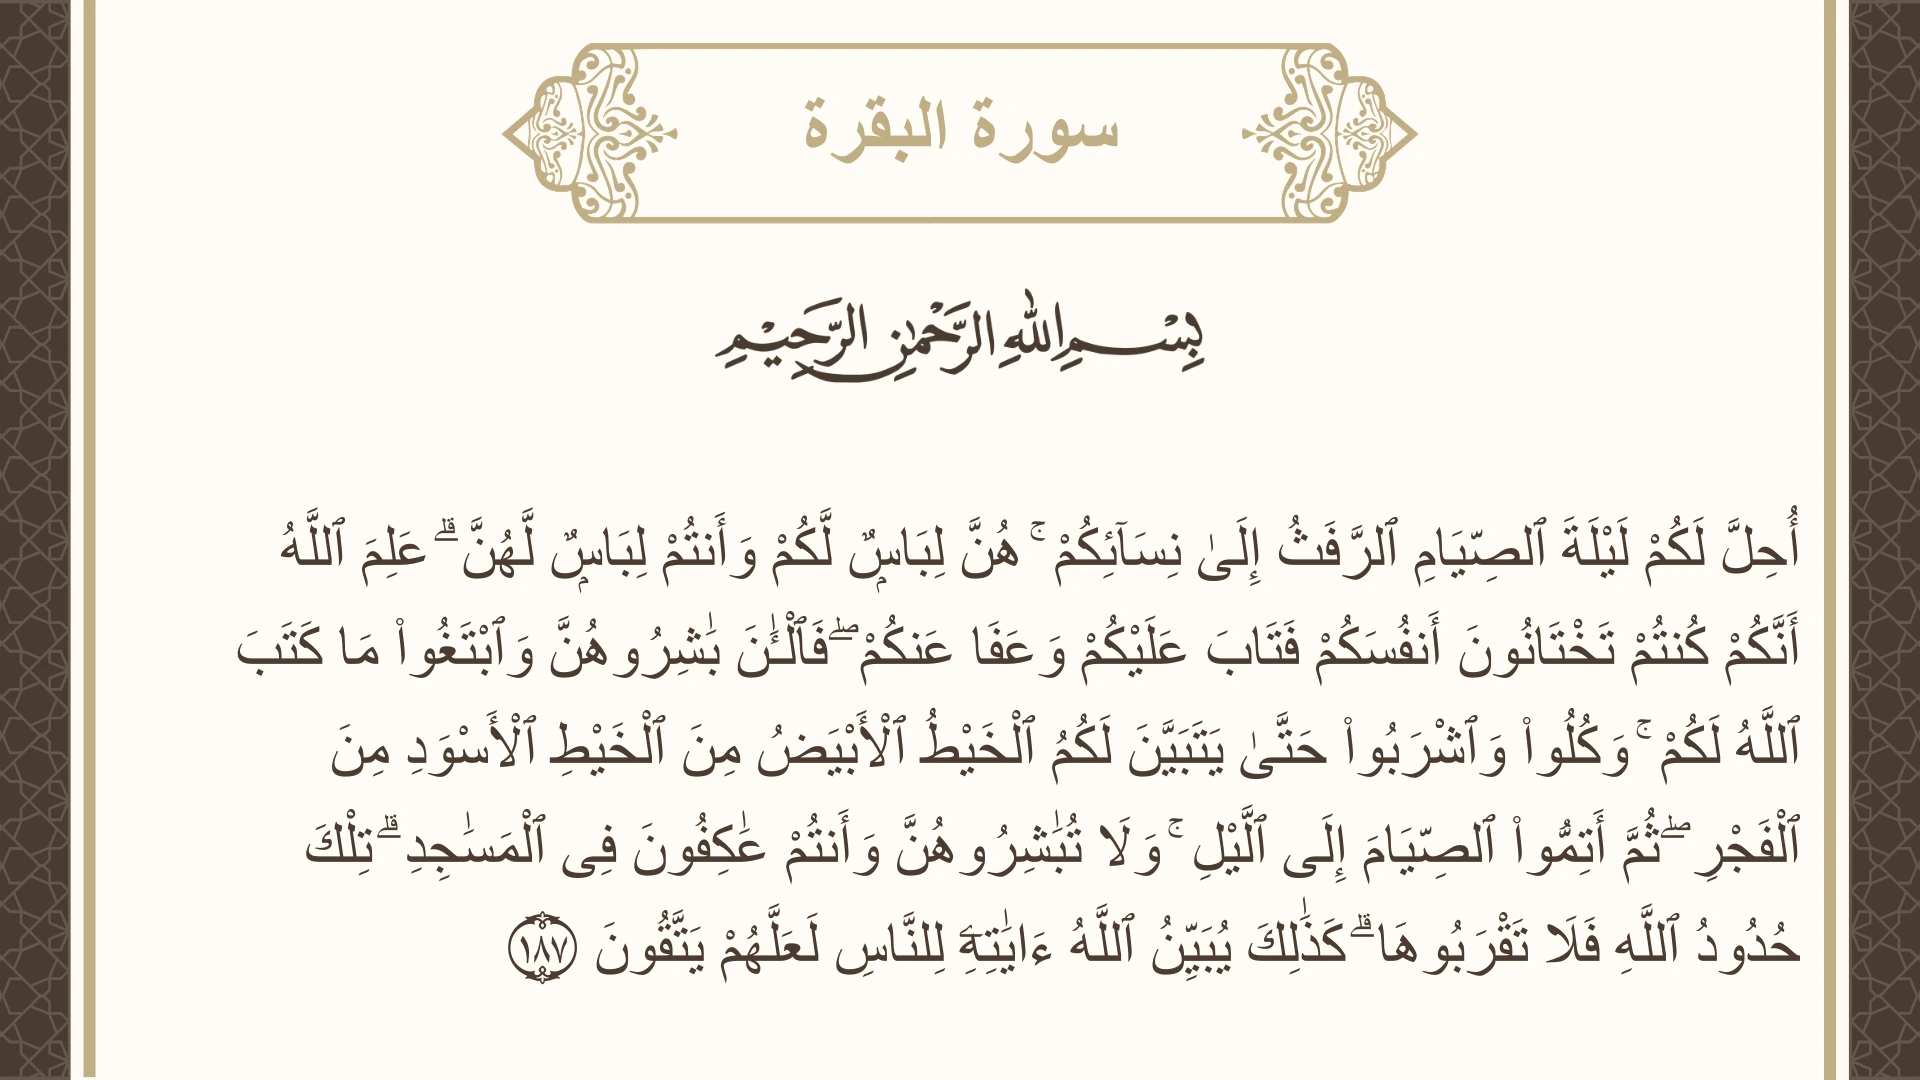 سورة البقرة
بِسْمِ اللهِ الرَّحْمٰنِ الرَّحِيْمِ
أُحِلَّ لَكُمْ لَيْلَةَ ٱلصِّيَامِ ٱلرَّفَثُ إِلَىٰ نِسَآئِكُمْ ۚ هُنَّ لِبَاسٌۭ لَّكُمْ وَأَنتُمْ لِبَاسٌۭ لَّهُنَّ ۗ عَلِمَ ٱللَّهُ
أَنَّكُمْ كُنتُمْ تَخْتَانُونَ أَنفُسَكُمْ فَتَابَ عَلَيْكُمْ وَعَفَا عَنكُمْ ۖ فَٱلْـَٔـٰنَ بَـٰشِرُوهُنَّ وَٱبْتَغُوا۟ مَا كَتَبَ
ٱللَّهُ لَكُمْ ۚ وَكُلُوا۟ وَٱشْرَبُوا۟ حَتَّىٰ يَتَبَيَّنَ لَكُمُ ٱلْخَيْطُ ٱلْأَبْيَضُ مِنَ ٱلْخَيْطِ ٱلْأَسْوَدِ مِنَ
ٱلْفَجْرِ ۖ ثُمَّ أَتِمُّوا۟ ٱلصِّيَامَ إِلَى ٱلَّيْلِ ۚ وَلَا تُبَـٰشِرُوهُنَّ وَأَنتُمْ عَـٰكِفُونَ فِى ٱلْمَسَـٰجِدِ ۗ تِلْكَ
حُدُودُ ٱللَّهِ فَلَا تَقْرَبُوهَا ۗ كَذَٰلِكَ يُبَيِّنُ ٱللَّهُ ءَايَـٰتِهِۦ لِلنَّاسِ لَعَلَّهُمْ يَتَّقُونَ ١٨٧